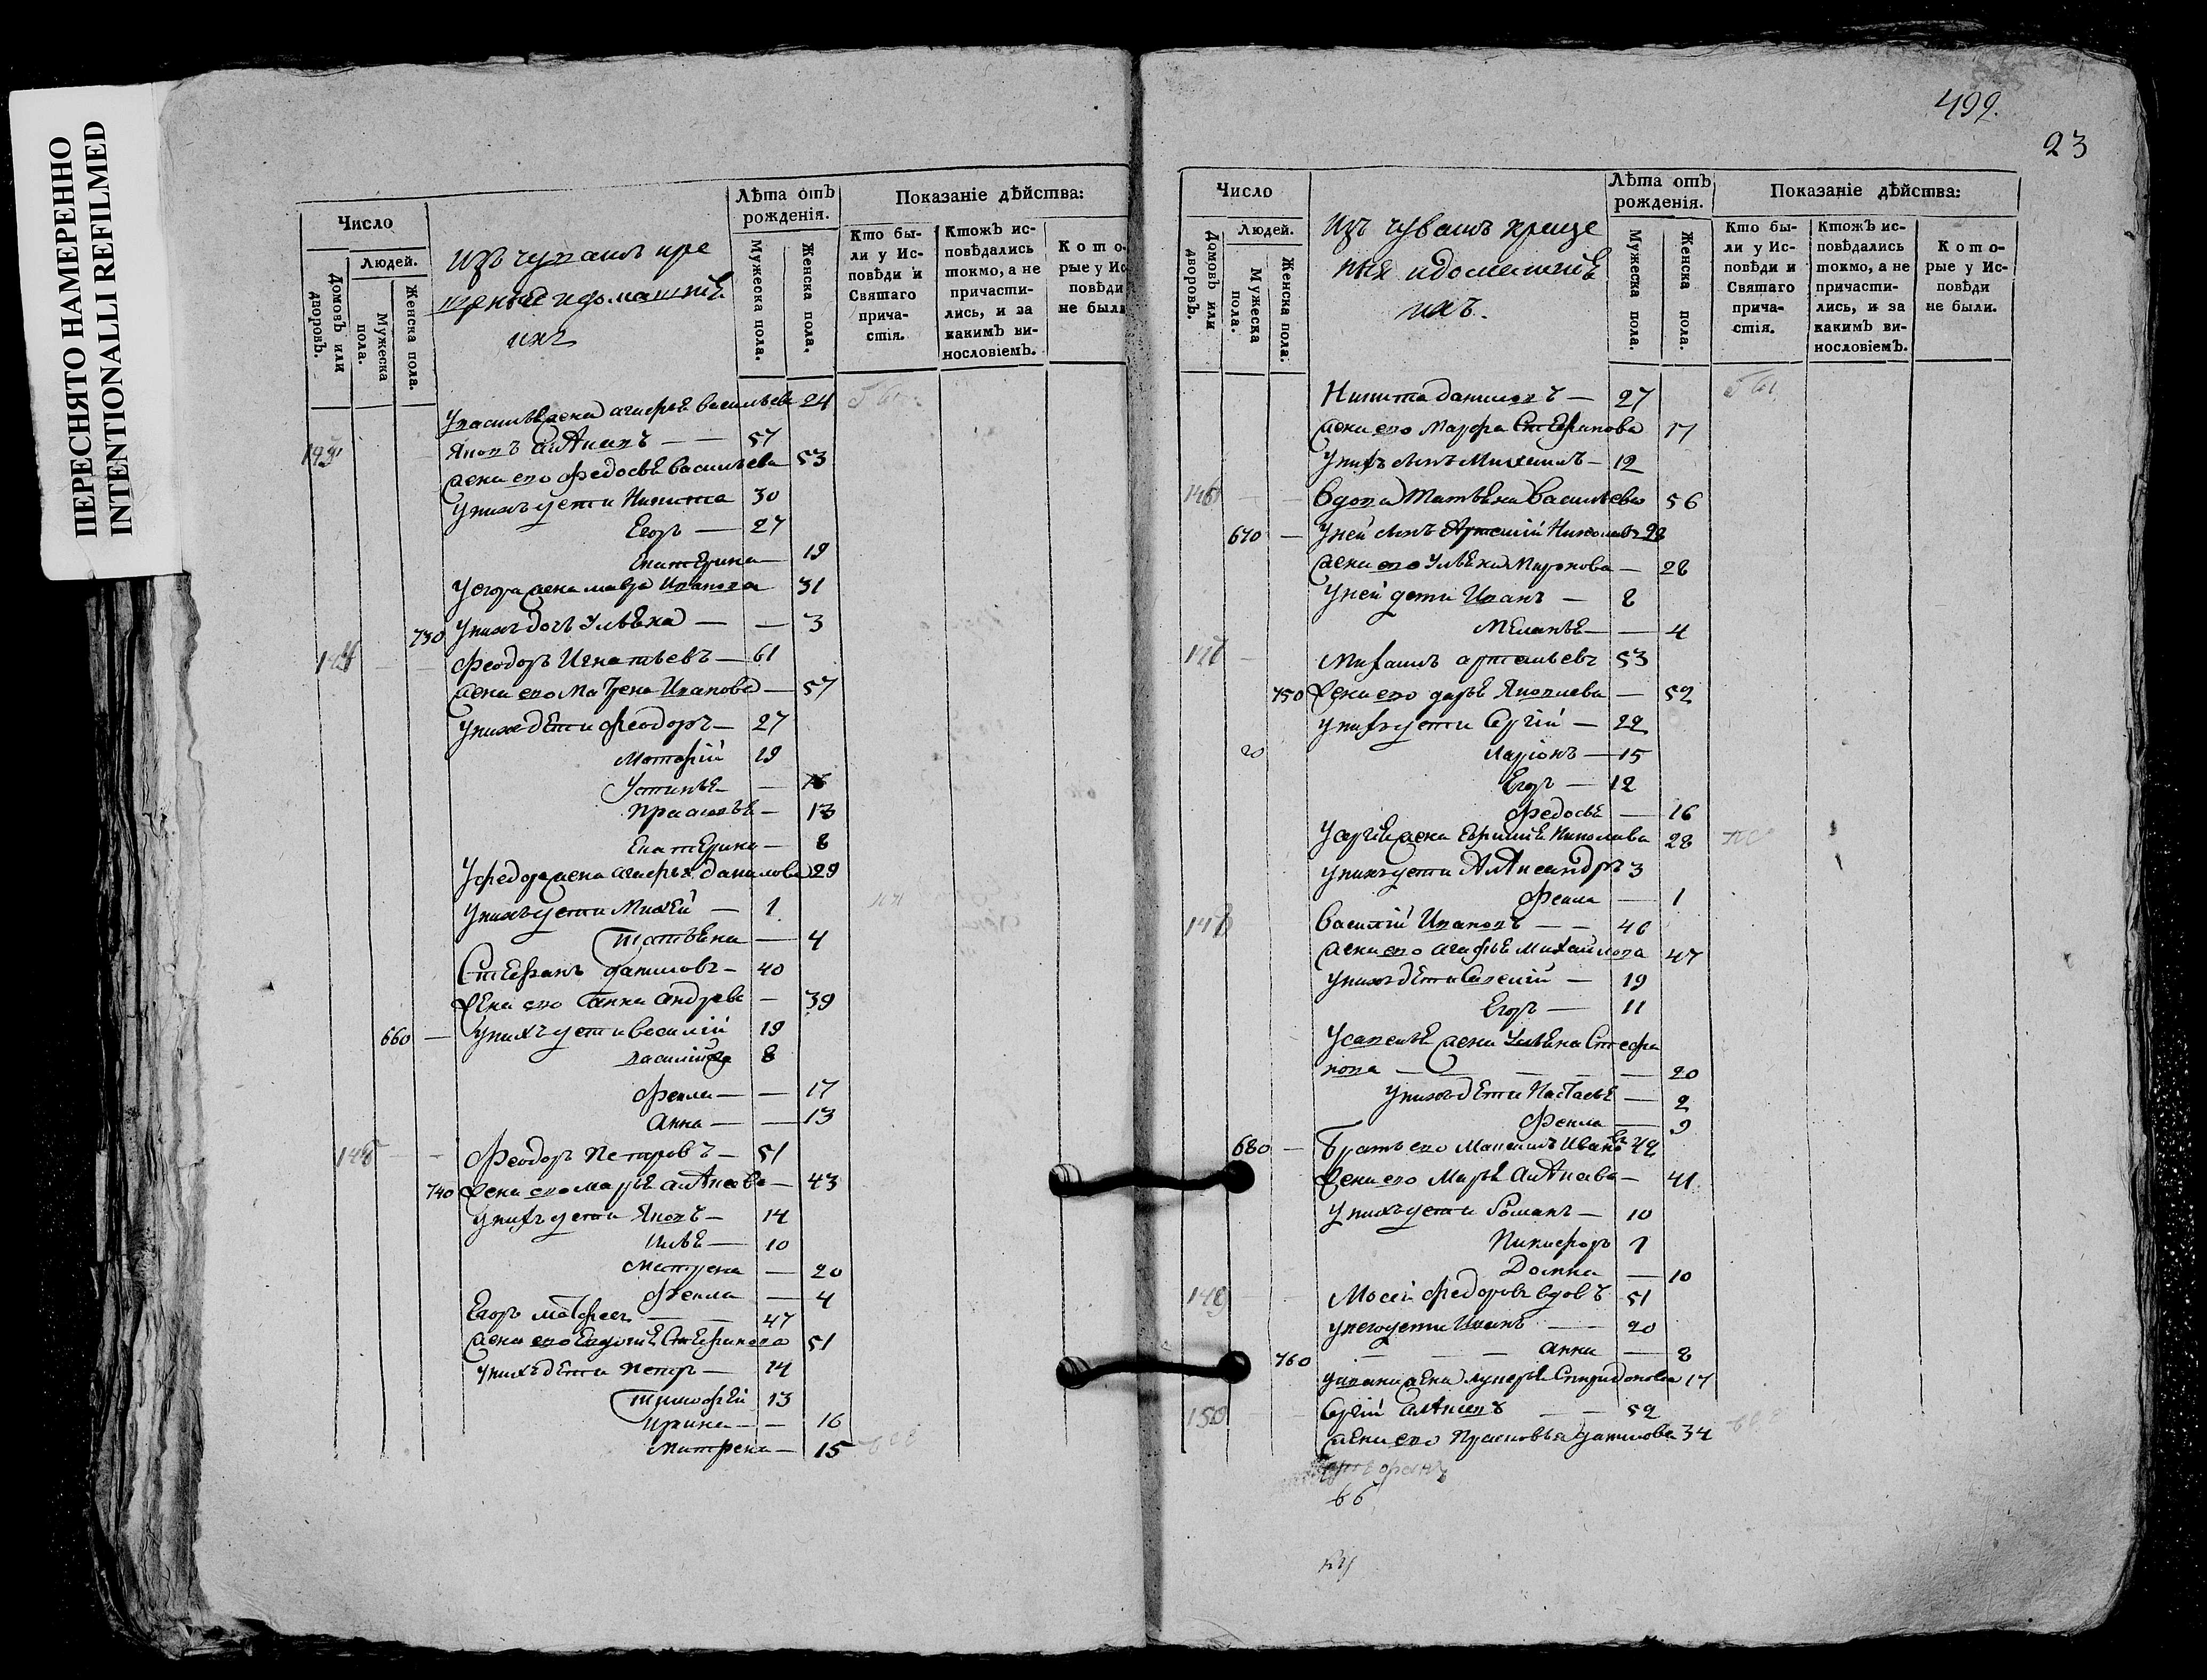 ПЕРЕСНЯТО НАМЕРЕННО
INTENTIONALLI REFILMED
Число
Людей.
Домовъ или дворовъ.
Мужеска пола.
Женска пола.
Изъ чувашъ кре
щеные и домашніе
ихъ
Лѣта отъ рожденія.
Мужеска пола.
Женска пола.
Показаніе дѣйства:
Кто бы-
ли у Ис-
повѣди и
Святаго
прича-
стія.
Ктожъ ис-
повѣдались
токмо, а не
причасти-
лись, и за
какимъ ви-
нословіемъ.
Кото-
рые у Ис
повѣди
не были
жена агафья васильева 24
Яковъ алѢксѣевъ — 57
жена его федосья васильева 53
у нихъ дети Никита 30
Егоръ — 27
Екатерина — 19
у егора жена мавра Иванова 31
730 у нихъ дочь Ульяна — — 3
феодоръ Игнатьевъ — 61
жена его матрена Иванова — 57
у нихъ дети феодоръ — 27
19
Устинья —
прасковья — 13
Екатерина — 8
у федора жена агафья данилова 29
у нихъ дети Михей — 1
татьяна — 4
Стефанъ даниловъ — 40
жена его анна андрева — 39
660 — у нихъ дети василій 19
василій же 8
фекла — — 17
анна — — 13
феодоръ петровъ — 51
740 жена его марья алексева — 43
у нихъ дети Яковъ — 14
илья — 10
матрена — 20
фекла — 4
Егоръ матфеевъ — — 47
жена его Евдокія Стефанова 51
у нихъ дети петръ — 14
тимофей 13
ирина — — 16
матрена — 15
499.
23
Число
Людей.
Домовъ или дворовъ.
Мужеска пола.
Женска пола.
Изъ чувашъ креще
ныя и домашніе
ихъ.
Лѣта отъ рожденія.
Мужеска пола.
Женска пола.
Показаніе дѣйства:
Кто бы-
ли у Ис-
повѣди и
Святаго
прича-
стія.
Ктожъ ис-
повѣдались
токмо, а не
причасти-
лись, и за
какимъ ви-
нословіемъ.
Кото-
рые у Ис-
повѣди
не были.
Никита даниловъ — 27
жена его Марфа Стефанова 17
у нихъ сынъ Михаилъ — 12
вдова татьяна васильева 56
670 — у ней сынъ Артемій Николаевъ 28
жена его Ульяна Миронова — 28
у ней дети Иванъ — 8
Меланья — — 4
Михаилъ артемьевъ 53
750 жена его дарья Яковлева — 52
у нихъ дети Сергій — 22
20 ларіонъ — 15
Егоръ — 12
федосья — 16
у сергея жена Ефимія Николаева 28
у нихъ дети Александръ 3
фекла — 1
василій Ивановъ — —
жена его агафья михайлова 47
у нихъ дети Савелій — 19
Егоръ — 11
у савелья жена Ульяна Стефа
нова — — — — 20
у нихъ дети Настасья — 2
фекла —
680 — братъ его Максимъ Ивановъ 42
жена его Марья Алексева — 41
у нихъ дети Романъ — 10
Никифоръ
Домна — 10
149 Мосей федоровъ вдовъ 51
у него дети Иванъ — 20
760 — — — анна — 8
у ивана жена лукерья Спиридонова 17
150 Сергій Алексеевъ — 52
жена его прасковья данилова 34
66